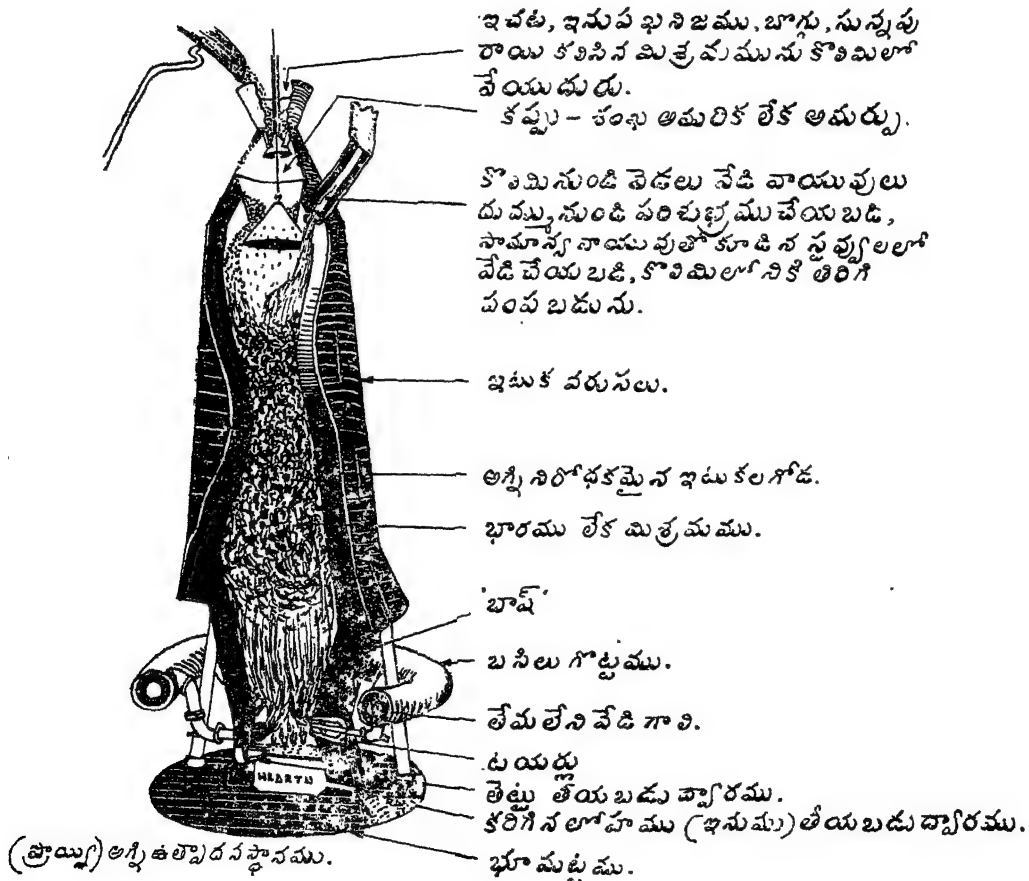 ఇచట, ఇనుప ఖనిజము, బొగ్గు, సున్నపు
రాయి కలిసిన మిశ్రమమును కొలిమిలో
వేయుదురు.
కప్పు - శంఖు అమరిక లేక అమర్పు.
కొలిమినుండి వెడలు వేడి వాయువులు
దుమ్మునుండి పరిశుభ్రముచేయబడి,
సామాన్య వాయువుతో కూడిన స్టవ్వులలో
వేడిచేయబడి, కొలిమిలోనికి తిరిగి
పంపబడును.
ఇటుక వరుసలు.
అగ్ని నిరోధకమైన ఇటుకలగోడ.
భారము లేక మిశ్రమము.
'బాష్'
బసిలు గొట్టము.
తేమలేని వేడి గాలి.
టయర్లు
తెట్టు తీయబడు ద్వారము.
HEARTH
కరిగిన లోహము (ఇనుము) తీయబడు ద్వారము.
(ప్రొయ్యి) అగ్ని ఉత్పాదనస్థానము.
భూమట్టము.